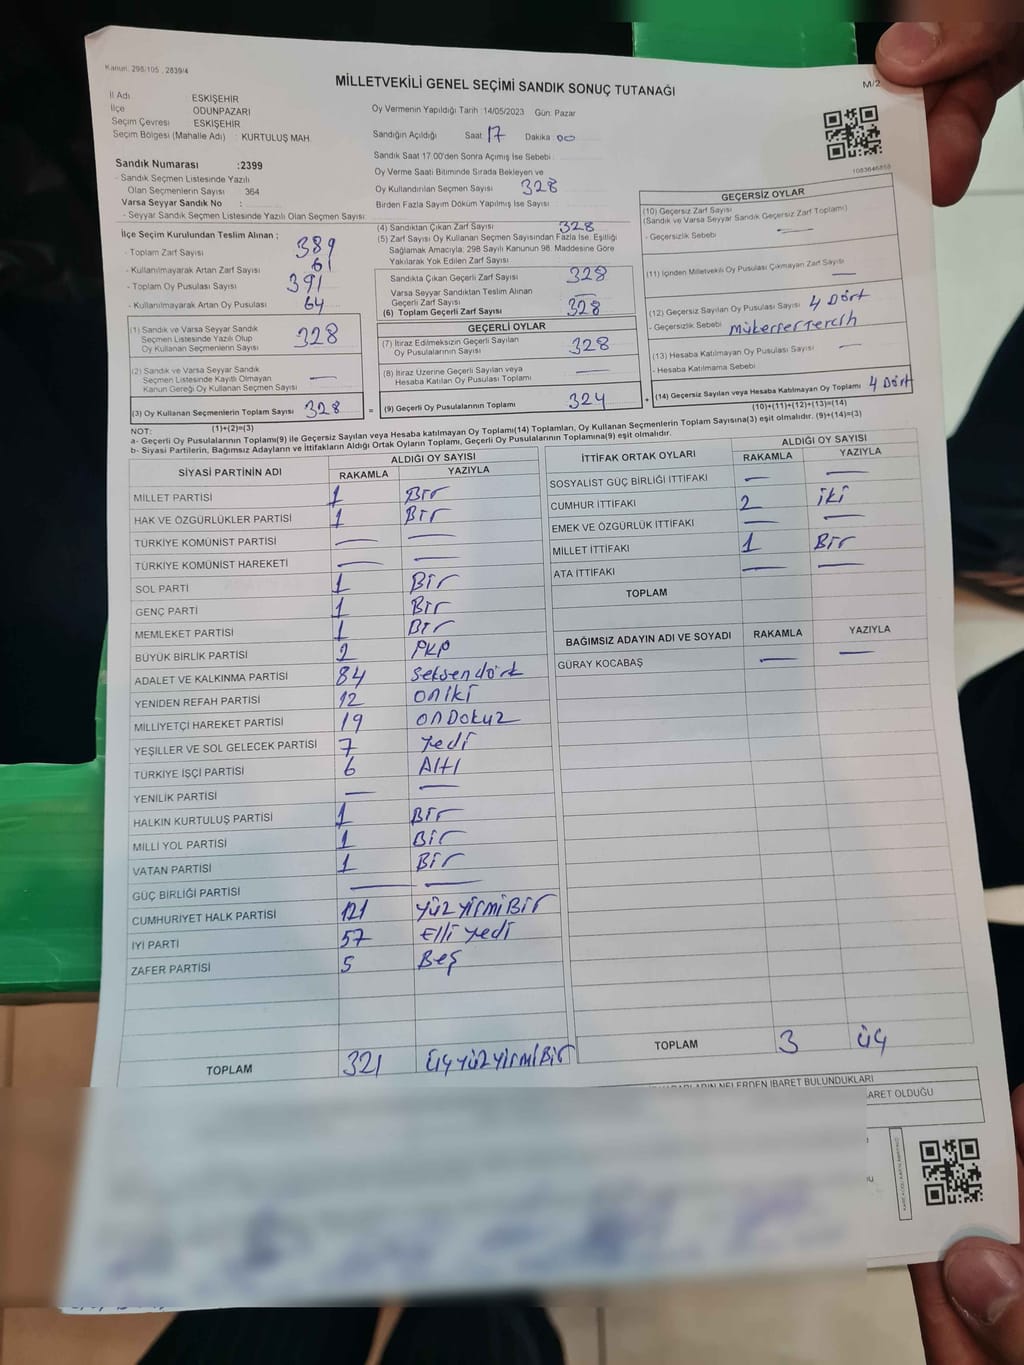 Kanun: 298/105 , 2839/4
MİLLETVEKİLİ GENEL SEÇİMİ SANDIK SONUÇ TUTANAĞI
M/2
İl Adı ESKİŞEHİR
İlçe ODUNPAZARI
Seçim Çevresi ESKİŞEHİR
Seçim Bölgesi (Mahalle Adı) : KURTULUŞ MAH.
Oy Vermenin Yapıldığı Tarih :14/05/2023 Gün: Pazar
Sandığın Açıldığı Saat 17 Dakika: 00
Sandık Saat 17:00'den Sonra Açımış İse Sebebi :
Oy Verme Saati Bitiminde Sırada Bekleyen ve
Oy Kullandırılan Seçmen Sayısı 328
Birden Fazla Sayım Döküm Yapılmış İse Sayısı :
Sandık Numarası :2399
- Sandık Seçmen Listesinde Yazılı
Olan Seçmenlerin Sayısı : 364
Varsa Seyyar Sandık No :
- Seyyar Sandık Seçmen Listesinde Yazılı Olan Seçmen Sayısı:
İlçe Seçim Kurulundan Teslim Alınan ;
- Toplam Zarf Sayısı 389
- Kullanılmayarak Artan Zarf Sayısı 61
- Toplam Oy Pusulası Sayısı 391
- Kullanılmayarak Artan Oy Pusulası 64
(1) Sandık ve Varsa Seyyar Sandık
Seçmen Listesinde Yazılı Olup
Oy Kullanan Seçmenlerin Sayısı 328
(2) Sandık ve Varsa Seyyar Sandık
Seçmen Listesinde Kayıtlı Olmayan
Kanun Gereği Oy Kullanan Seçmen Sayısı —
(3) Oy Kullanan Seçmenlerin Toplam Sayısı 328
(1)+(2)=(3)
(4) Sandıktan Çıkan Zarf Sayısı 328
(5) Zarf Sayısı Oy Kullanan Seçmen Sayısından Fazla İse, Eşitliği
Sağlamak Amacıyla, 298 Sayılı Kanunun 98. Maddesine Göre
Yakılarak Yok Edilen Zarf Sayısı :
Sandıkta Çıkan Geçerli Zarf Sayısı 328
Varsa Seyyar Sandıktan Teslim Alınan
Geçerli Zarf Sayısı —
(6) Toplam Geçerli Zarf Sayısı 328
GEÇERLİ OYLAR
(7) İtiraz Edilmeksizin Geçerli Sayılan
Oy Pusulalarının Sayısı 328
(8) İtiraz Üzerine Geçerli Sayılan veya
Hesaba Katılan Oy Pusulası Toplamı —
= (9) Geçerli Oy Pusulalarının Toplamı 324
1083646858
GEÇERSİZ OYLAR
(10) Geçersiz Zarf Sayısı
(Sandık ve Varsa Seyyar Sandık Geçersiz Zarf Toplamı)
- Geçersizlik Sebebi : —
(11) İçinden Milletvekili Oy Pusulası Çıkmayan Zarf Sayısı —
(12) Geçersiz Sayılan Oy Pusulası Sayısı 4 Dört
- Geçersizlik Sebebi Mükerrer Tercih
(13) Hesaba Katılmayan Oy Pusulası Sayısı —
- Hesaba Katılmama Sebebi
+ (14) Geçersiz Sayılan veya Hesaba Katılmayan Oy Toplamı 4 Dört
(10)+(11)+(12)+(13)=(14)
NOT:
a- Geçerli Oy Pusulalarının Toplamı(9) ile Geçersiz Sayılan veya Hesaba katılmayan Oy Toplamı(14) Toplamları, Oy Kullanan Seçmenlerin Toplam Sayısına(3) eşit olmalıdır. (9)+(14)=(3)
b- Siyasi Partilerin, Bağımsız Adayların ve İttifakların Aldığı Ortak Oyların Toplamı, Geçerli Oy Pusulalarının Toplamına(9) eşit olmalıdır.
SİYASİ PARTİNİN ADI ALDIĞI OY SAYISI
RAKAMLA YAZIYLA
MİLLET PARTİSİ 1 Bir
HAK VE ÖZGÜRLÜKLER PARTİSİ 1 Bir
TÜRKİYE KOMÜNİST PARTİSİ — —
TÜRKİYE KOMÜNİST HAREKETİ — —
SOL PARTİ 1 Bir
GENÇ PARTİ 1 Bir
MEMLEKET PARTİSİ 1 Bir
BÜYÜK BİRLİK PARTİSİ 2
ADALET VE KALKINMA PARTİSİ 84 Seksendört
YENİDEN REFAH PARTİSİ 12 oniki
MİLLİYETÇİ HAREKET PARTİSİ 19 onDokuz
YEŞİLLER VE SOL GELECEK PARTİSİ 7 Yedi
TÜRKİYE İŞÇİ PARTİSİ 6 Altı
YENİLİK PARTİSİ — —
HALKIN KURTULUŞ PARTİSİ 1 Bir
MİLLİ YOL PARTİSİ 1 Bir
VATAN PARTİSİ 1 Bir
GÜÇ BİRLİĞİ PARTİSİ — —
CUMHURİYET HALK PARTİSİ 121 YüzYirmiBir
İYİ PARTİ 57 Elli Yedi
ZAFER PARTİSİ 5 Beş
TOPLAM 321 ÜçYüzYirmiBir
İTTİFAK ORTAK OYLARI ALDIĞI OY SAYISI
RAKAMLA YAZIYLA
SOSYALİST GÜÇ BİRLİĞİ İTTİFAKI — —
CUMHUR İTTİFAKI 2 iki
EMEK VE ÖZGÜRLÜK İTTİFAKI — —
MİLLET İTTİFAKI 1 Bir
ATA İTTİFAKI — —
TOPLAM
BAĞIMSIZ ADAYIN ADI VE SOYADI RAKAMLA YAZIYLA
GÜRAY KOCABAŞ — —
TOPLAM 3 üç
NELERDEN İBARET BULUNDUKLARI
ARET OLDUĞU